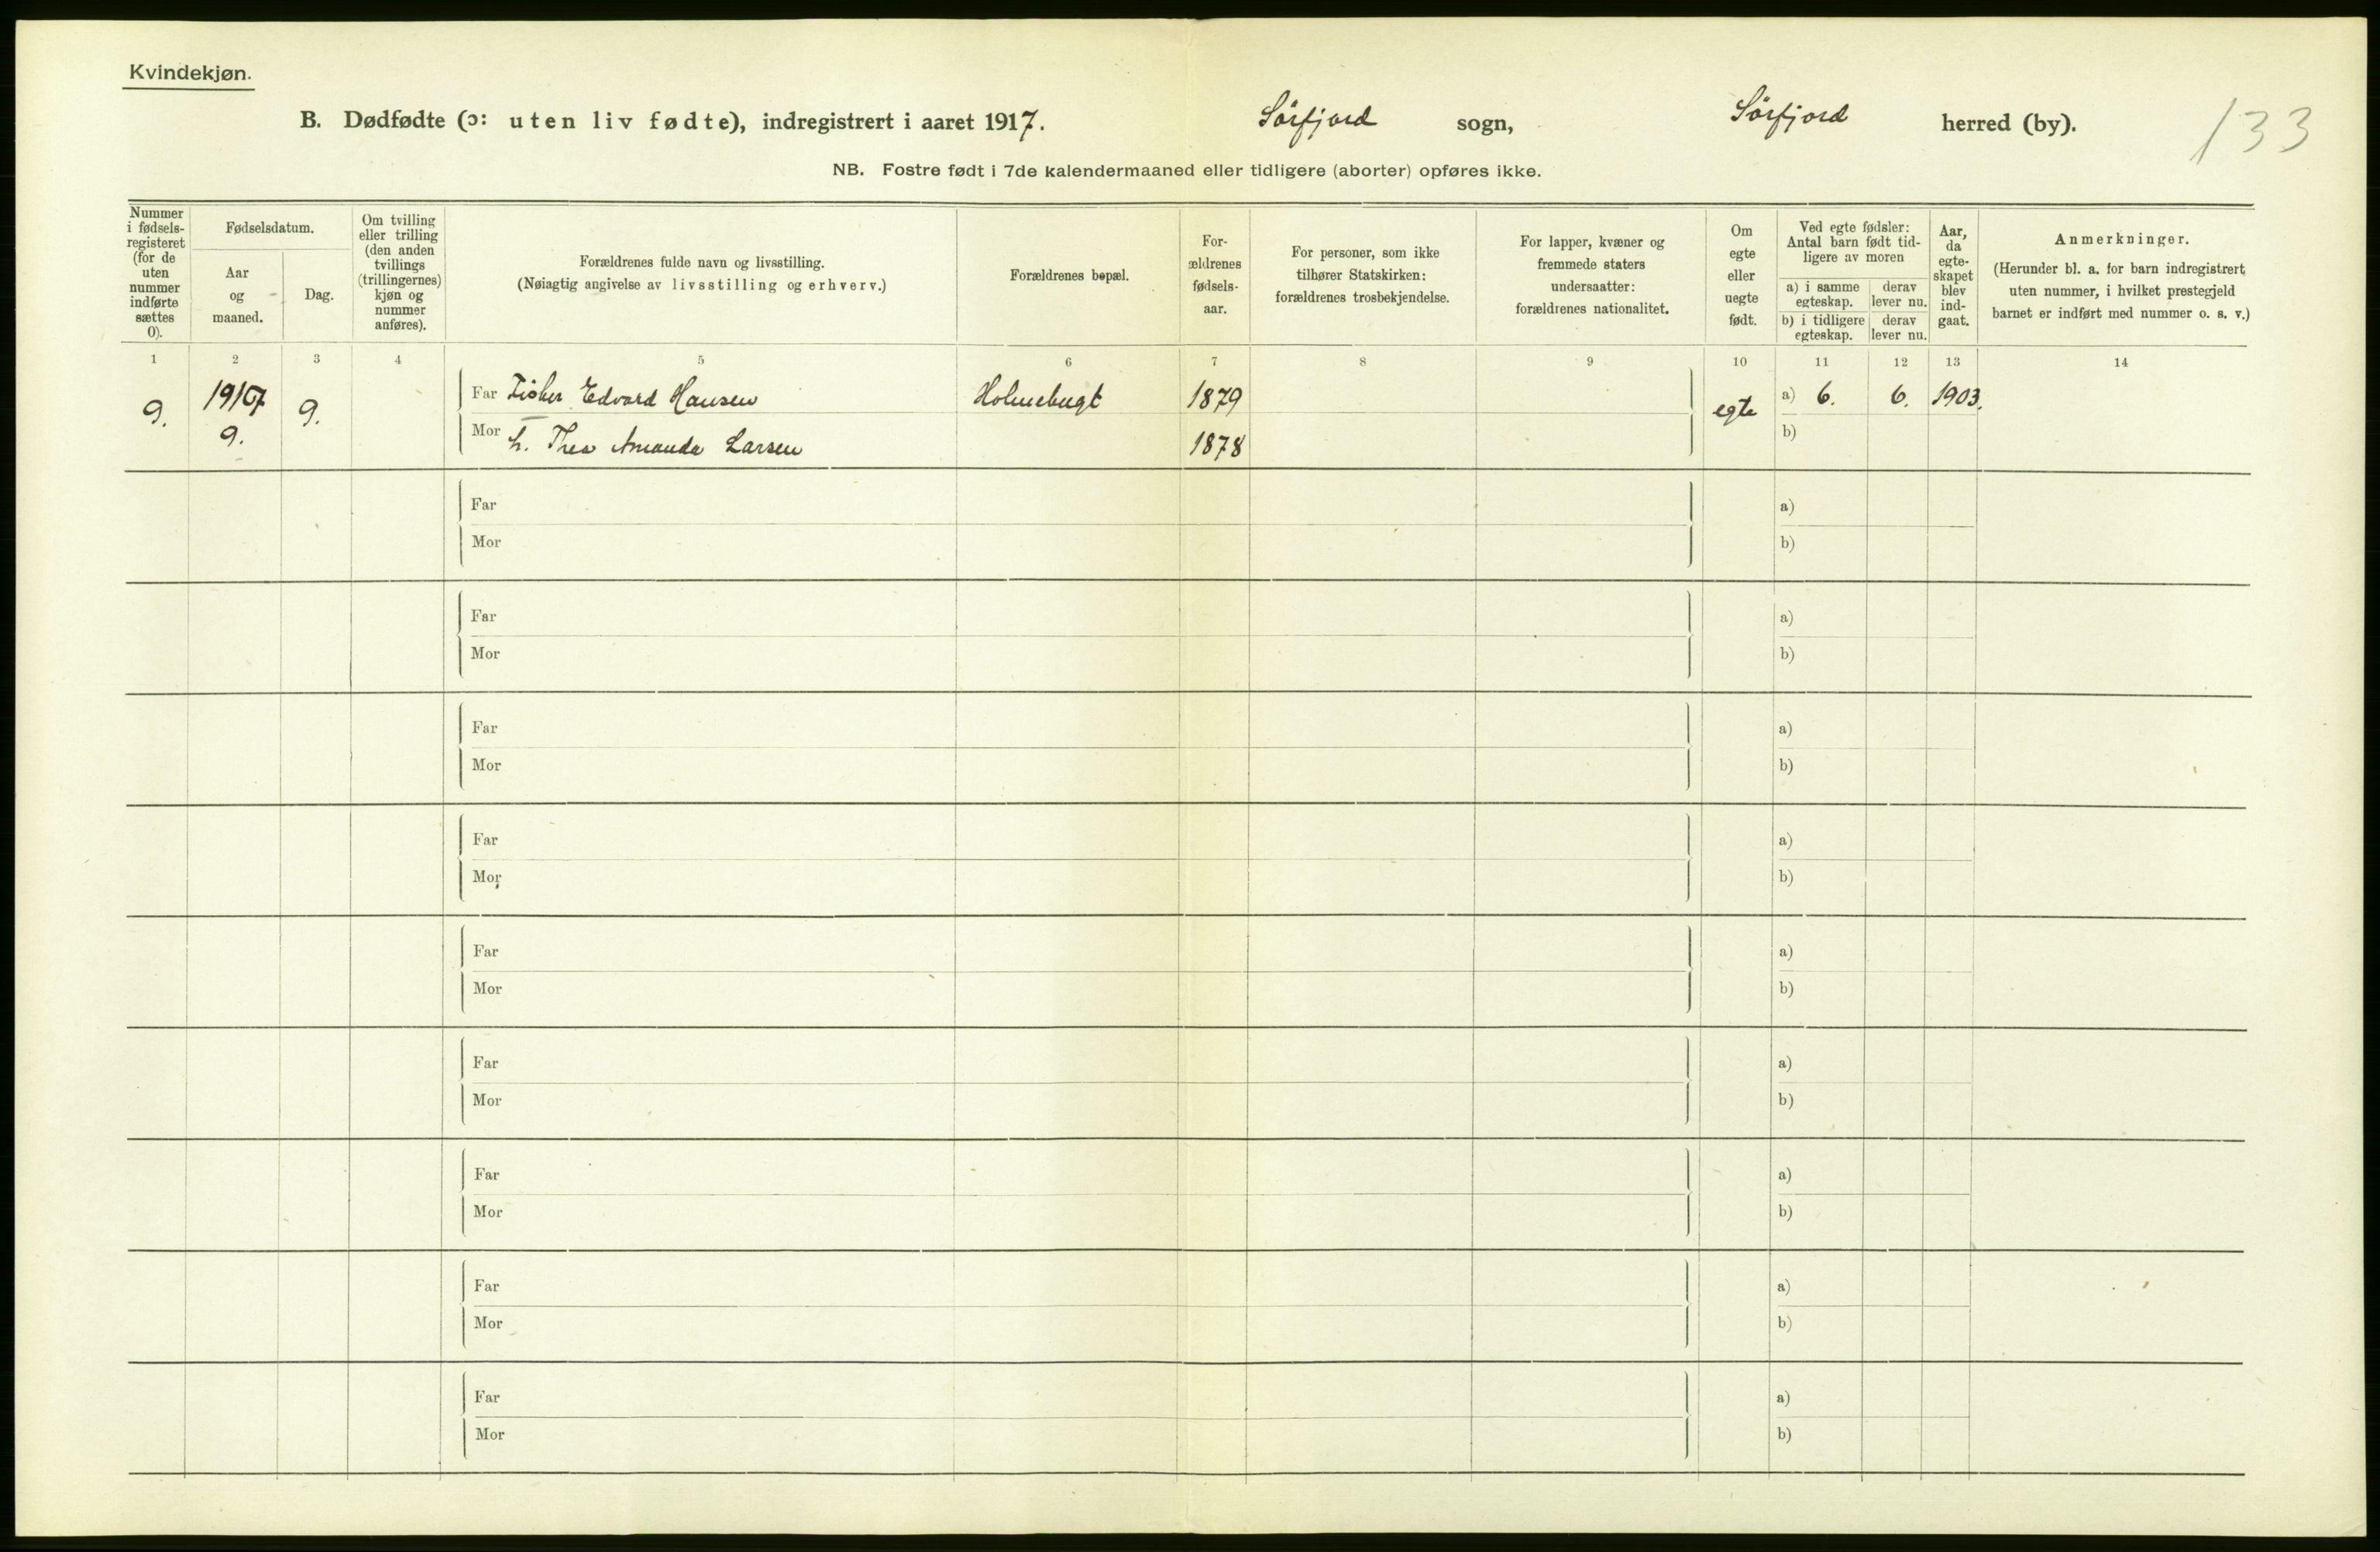 Kvindekjøn.
B. Dødfødte (ɔ: uten liv fødte), indregistrert i aaret 1917. Sörfjord sogn, Sörfjord herred (by). 133
NB. Fostre født i 7de kalendermaaned eller tidligere (aborter) opføres ikke.
Nummer
i fødsels-
registeret
(for de
uten
nummer
indførte
sættes
0).
Fødselsdatum.
Aar
og
maaned.
Dag.
Om tvilling
eller trilling
(den anden
tvillings
(trillingernes)
kjøn og
nummer
anføres).
Forældrenes fulde navn og livsstilling.
(Nøiagtig angivelse av livsstilling og erhverv.)
Forældrenes bopæl.
For-
ældrenes
fødsels-
aar.
For personer, som ikke
tilhører Statskirken:
forældrenes trosbekjendelse.
For lapper, kvæner og
fremmede staters
undersaatter:
forældrenes nationalitet.
Om
egte
eller
uegte
født.
Ved egte fødsler:
Antal barn født tid-
ligere av moren
a) i samme
egteskap.
derav
lever nu.
b) i tidligere
egteskap.
derav
lever nu.
Aar,
da
egte-
skapet
blev
ind-
gaat.
Anmerkninger.
(Herunder bl. a. for barn indregistrert
uten nummer, i hvilket prestegjeld
barnet er indført med nummer o. s. v.)
1 2 3 4 5 6 7 8 9 10 11 12 13 14
9. 1917 9. 9.
Far Fisker Edvard Hansen Holmebugt 1879 egte a) 6. 6. 1903.
Mor h. Thea Amanda Larsen 1878 b)
Far a)
Mor b)
Far a)
Mor b)
Far a)
Mor b)
Far a)
Mor b)
Far a)
Mor b)
Far a)
Mor b)
Far a)
Mor b)
Far a)
Mor b)
Far a)
Mor b)